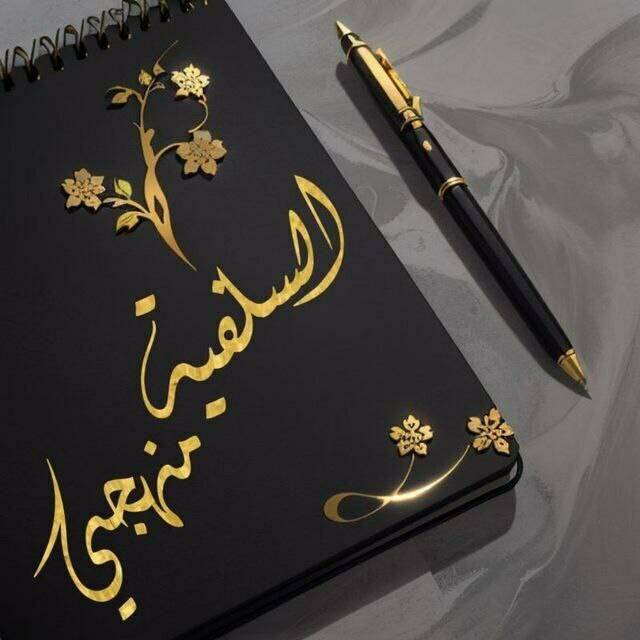 السلفية منهجي